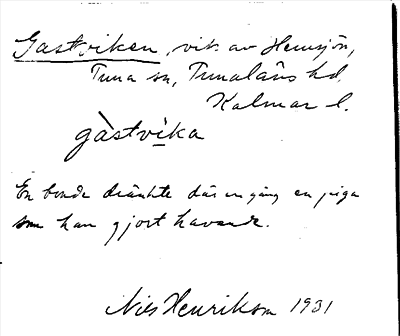 Gastviken, vik av Hemsjön,
Tuna sn, Tunaläns hd,
Kalmar l.
gàstvi̱ka
En bonde dränkte där en gång en piga
som han gjort havande.
Nils Henrikson 1931